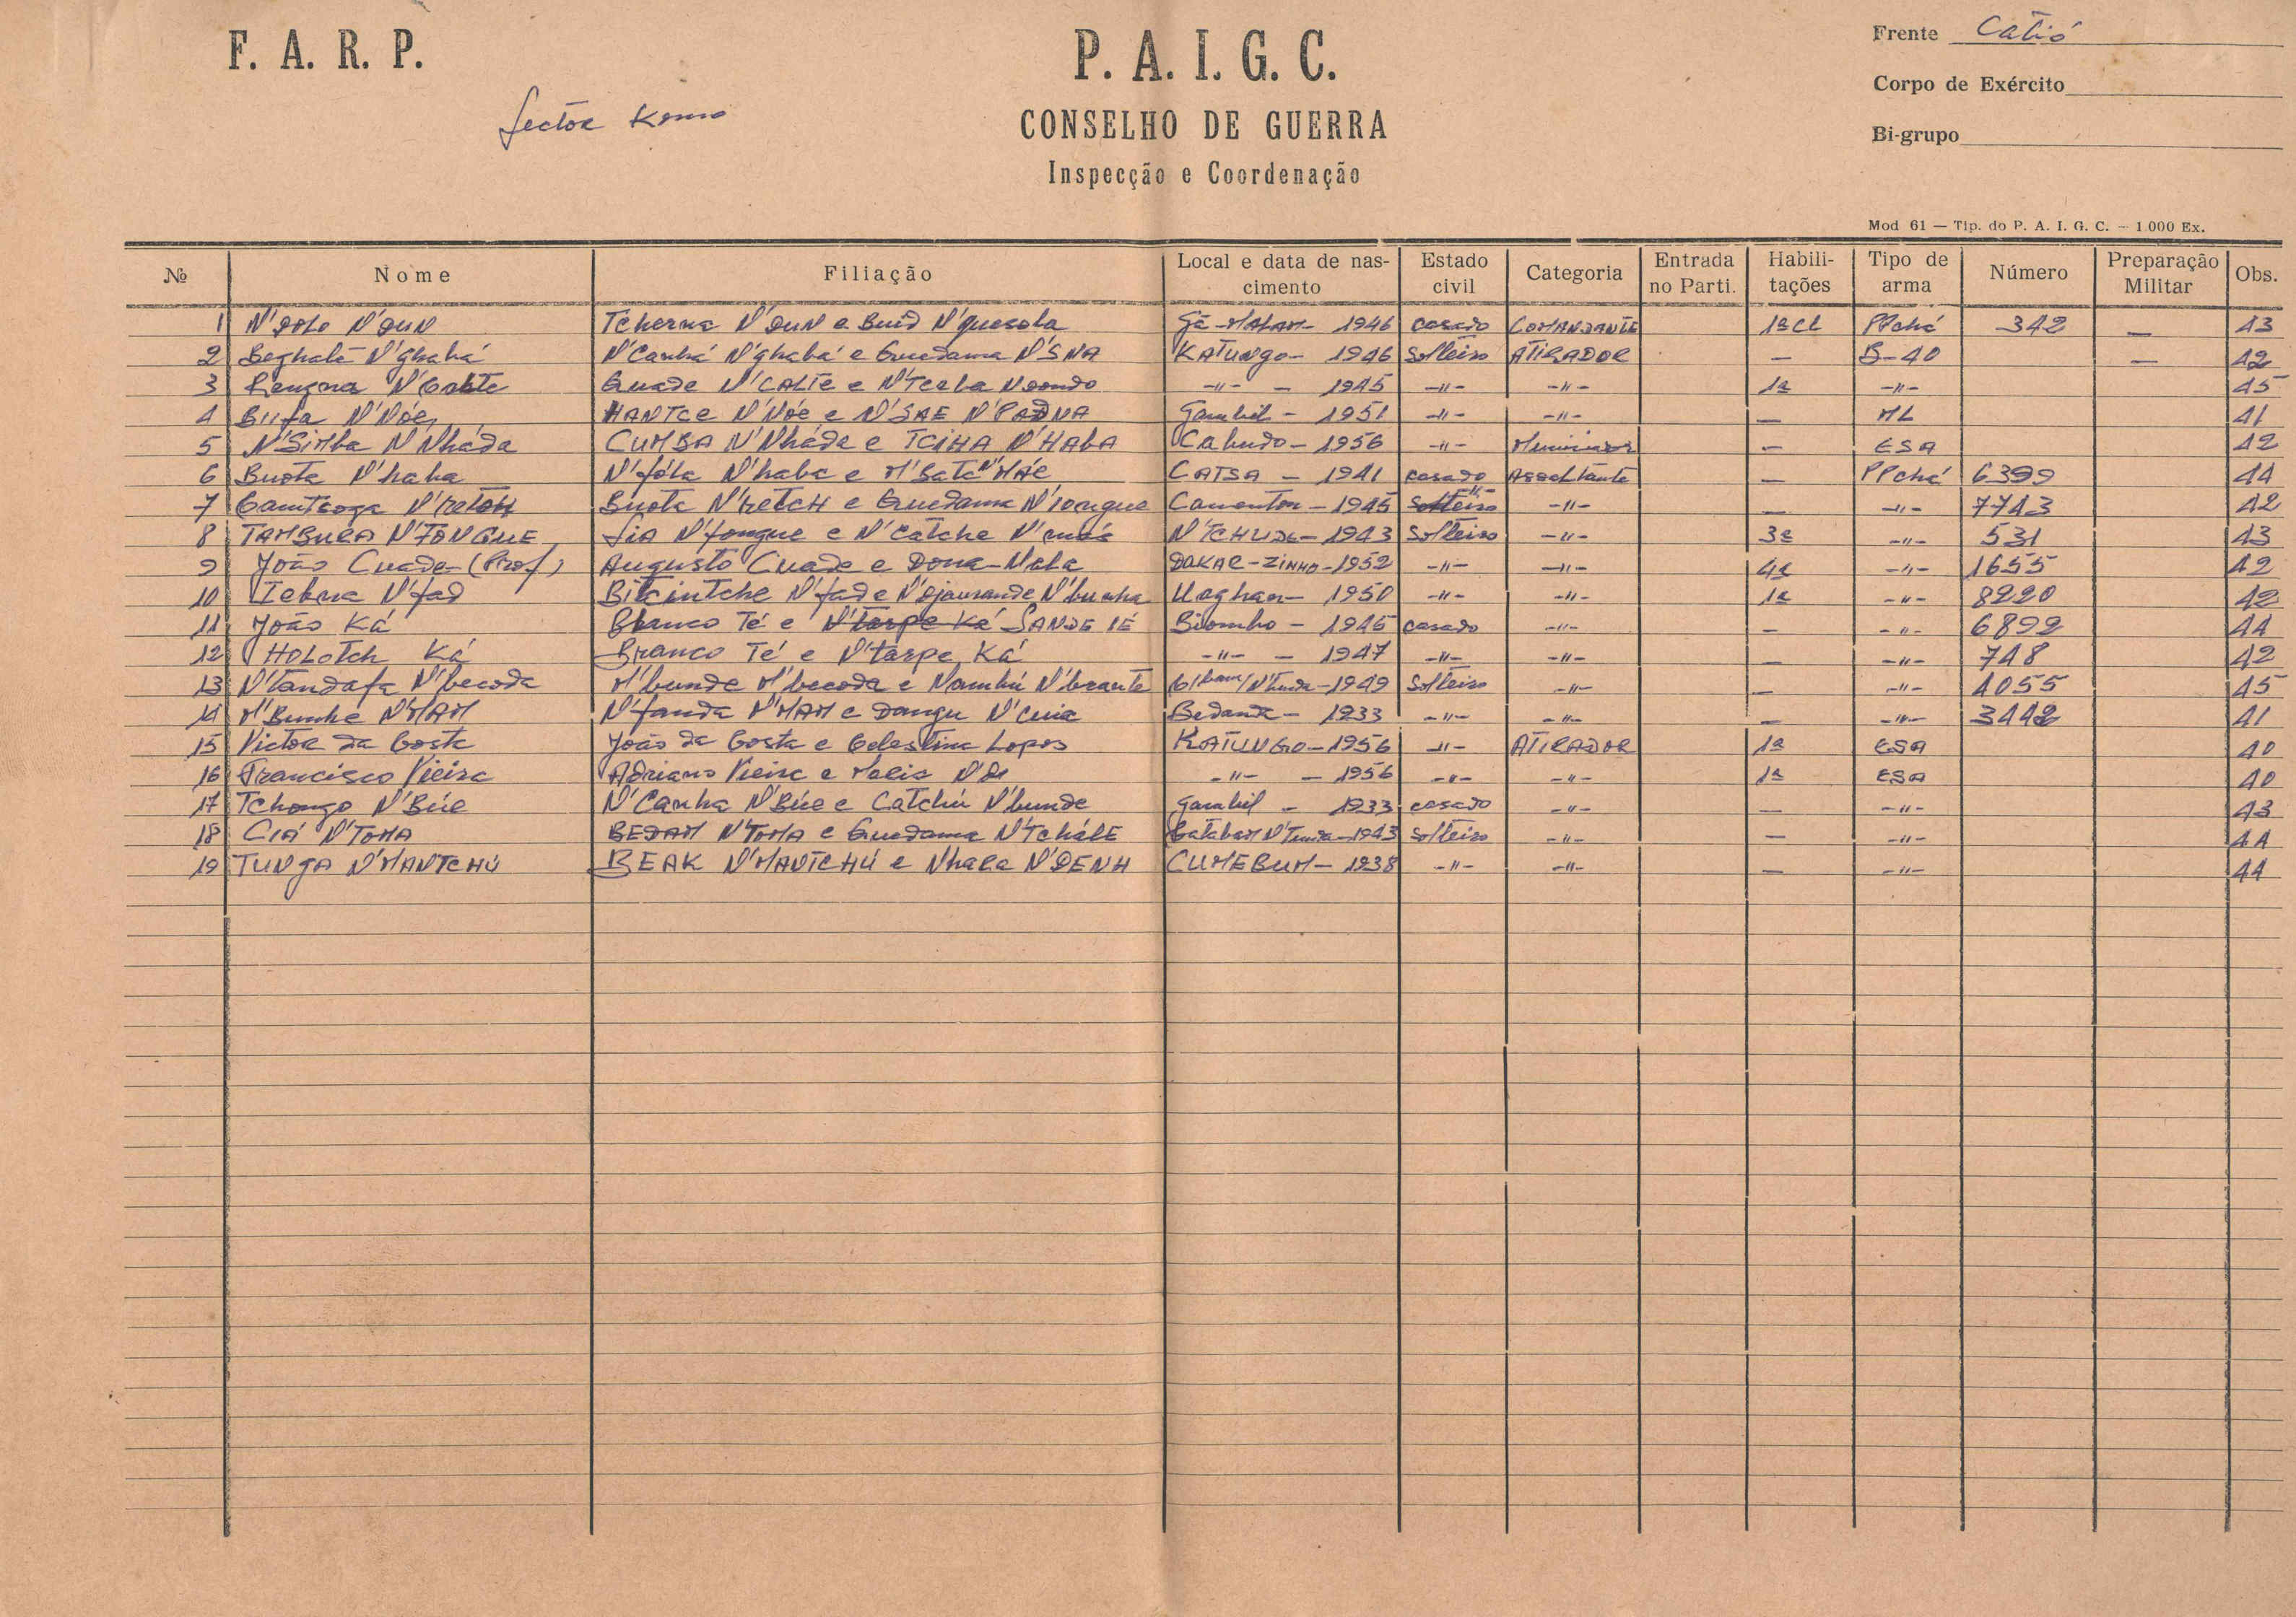 F. A. R. P.
P. A. I. G. C.
Frente Catió
Sector Komo
CONSELHO DE GUERRA
Corpo de Exército
Inspecção e Coordenação
Bi-grupo
Mod 61 — Tip. do P. A. I. G. C. — 1.000 Ex.
№ Nome Filiação Local e data de nascimento Estado civil Categoria Entrada no Parti. Habilitações Tipo de arma Número Preparação Militar Obs.
1 N'DOLO N'DUN Tcherna N'DUN e Buid N'quesola Gã-MALAM - 1946 casado COMANDANTE 1ªcl PPchá 342 — 43
2 N'ghabá N'Canhá N'ghabá e Guedama N'SNA KATUNGO - 1946 Solteiro ATIRADOR — B-40 — 42
3 Guade N'CALTE e -"- - 1945 -"- -"- 1ª -"- 45
4 Biifa N'Nóe HANTCE N'Nóe e N'SAE N'PADNA Gambil - 1951 -"- -"- — ML 41
5 N'Simba N'Nháda CUMBA N'Nháda e TCIHA N'HABA Cabudo - 1956 -"- Municiador — ESA 42
6 Buota N'haba N'fóla N'haba e CATSA - 1941 casado Assaltante — PPchá 6399 44
7 Buota N'RETCH e Guedama N'tongue - 1945 Solteiro -"- — -"- 7743 42
8 TAMBURA N'TONGUE N'tongue e N'Catche - 1943 Solteiro -"- 3ª -"- 531 43
9 João Cuade-(Prof) Augusto Cuade e Dona-Nala DAKAR-ZINHO - 1952 -"- -"- 4ª -"- 1655 42
10 Iebna N'fad Bitcintche N'fad e N'djaurande N'bunha Uaghan - 1950 -"- -"- 1ª -"- 8220 42
11 João Ká Branco Té e N'taspe Ká SANDE IÉ Biombo - 1945 casado -"- — -"- 6892 44
12 HOLOTCH Ká Branco Té e N'taspe Ká -"- - 1947 -"- -"- — -"- 748 42
13 N'tandafa N'becoda M'bunde N'becoda e Nambú N'brante - 1949 Solteiro -"- — -"- 4055 45
14 M'Bunhe N'MAM N'fanda N'MAM e Dangu N'Cuia Bedanda - 1933 -"- -"- — -"- 3442 41
15 Victor da Costa João da Costa e Celestina Lopes KATUNGO - 1956 -"- ATIRADOR 1ª ESA 40
16 Francisco Vieira Adriano Vieira e Maria -"- - 1956 -"- -"- 1ª ESA 40
17 Tchongo N'Búe N'Canha N'Búe e Catchú N'bunde Gambil - 1933 casado -"- — -"- 43
18 CIÁ N'TOMA BEDAM N'TOMA e Guedama N'Tchále - 1943 Solteiro -"- — -"- 44
19 TUNGA N'MANTCHÚ BEAK N'MANTCHÚ e Nhara N'DENH CUMEBUM - 1938 -"- -"- — -"- 44